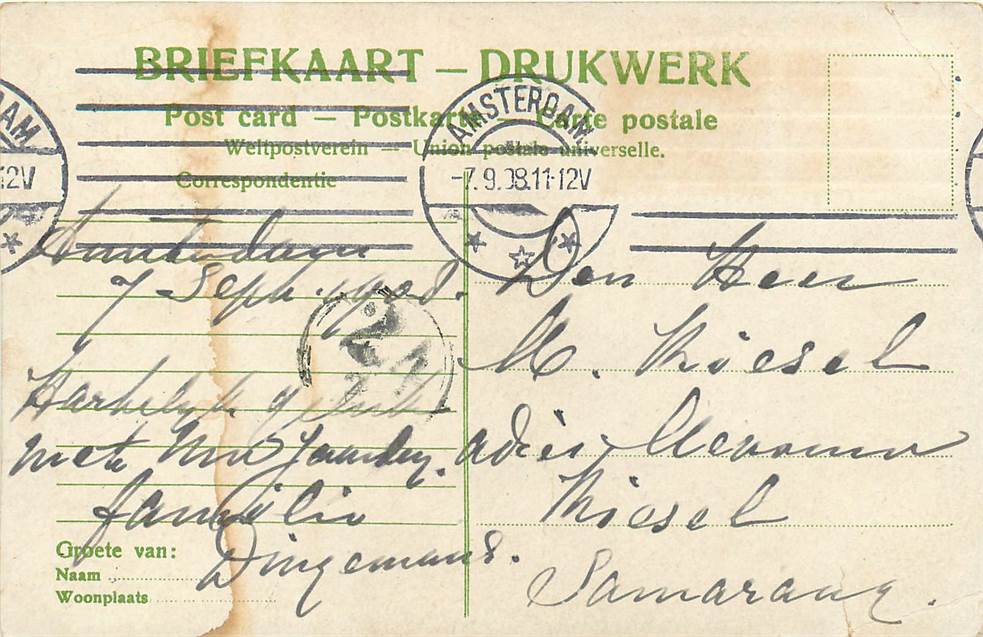 BRIEFKAART — DRUKWERK
Post card — Postkarte — Carte postale
Weltpostverein — Union postale universelle.
Correspondentie
AMSTERDAM
-7.9.08.11-12V
DAM
12V
Amsterdam
7 Sept. 1908.
Hartelijk gefelici
met Uw Jaardag.
familie
Dingemans.
Groete van:
Naam
Woonplaats
Den Heer
M. Kiesel
adres Mevrouw
Kiesel
Samarang.